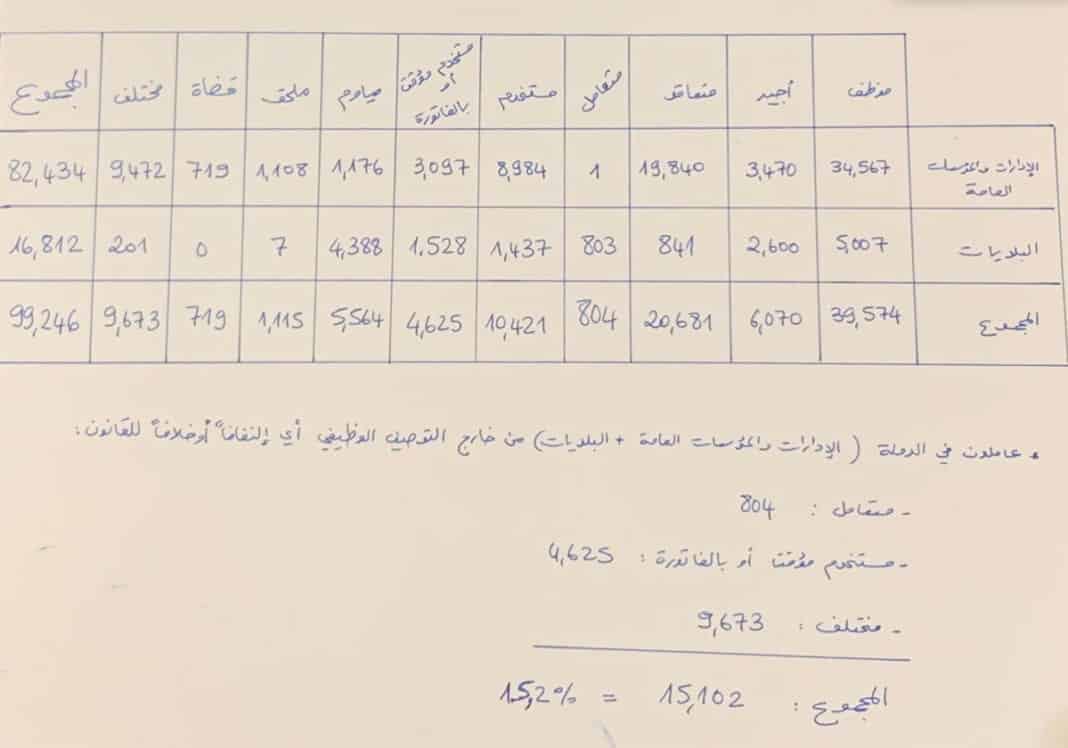 موظف أجير متعاقد متعامل مستخدم مستخدم مؤقت أو بالفاتورة مياوم ملحق قضاة مختلف المجموع
الإدارات والمؤسسات العامة 34,567 3,470 19,840 1 8,984 3,097 1,176 1,108 719 9,472 82,434
البلديات 5,007 2,600 841 803 1,437 1,528 4,388 7 0 201 16,812
المجموع 39,574 6,070 20,681 804 10,421 4,625 5,564 1,115 719 9,673 99,246
* عاملون في الدولة (الإدارات والمؤسسات العامة + البلديات) من خارج التوصيف الوظيفي أي إلتفافاً أو خلافاً للقانون:
- متعامل: 804
- مستخدم مؤقت أو بالفاتورة: 4,625
- مختلف: 9,673
المجموع: 15,102 = 15,2%